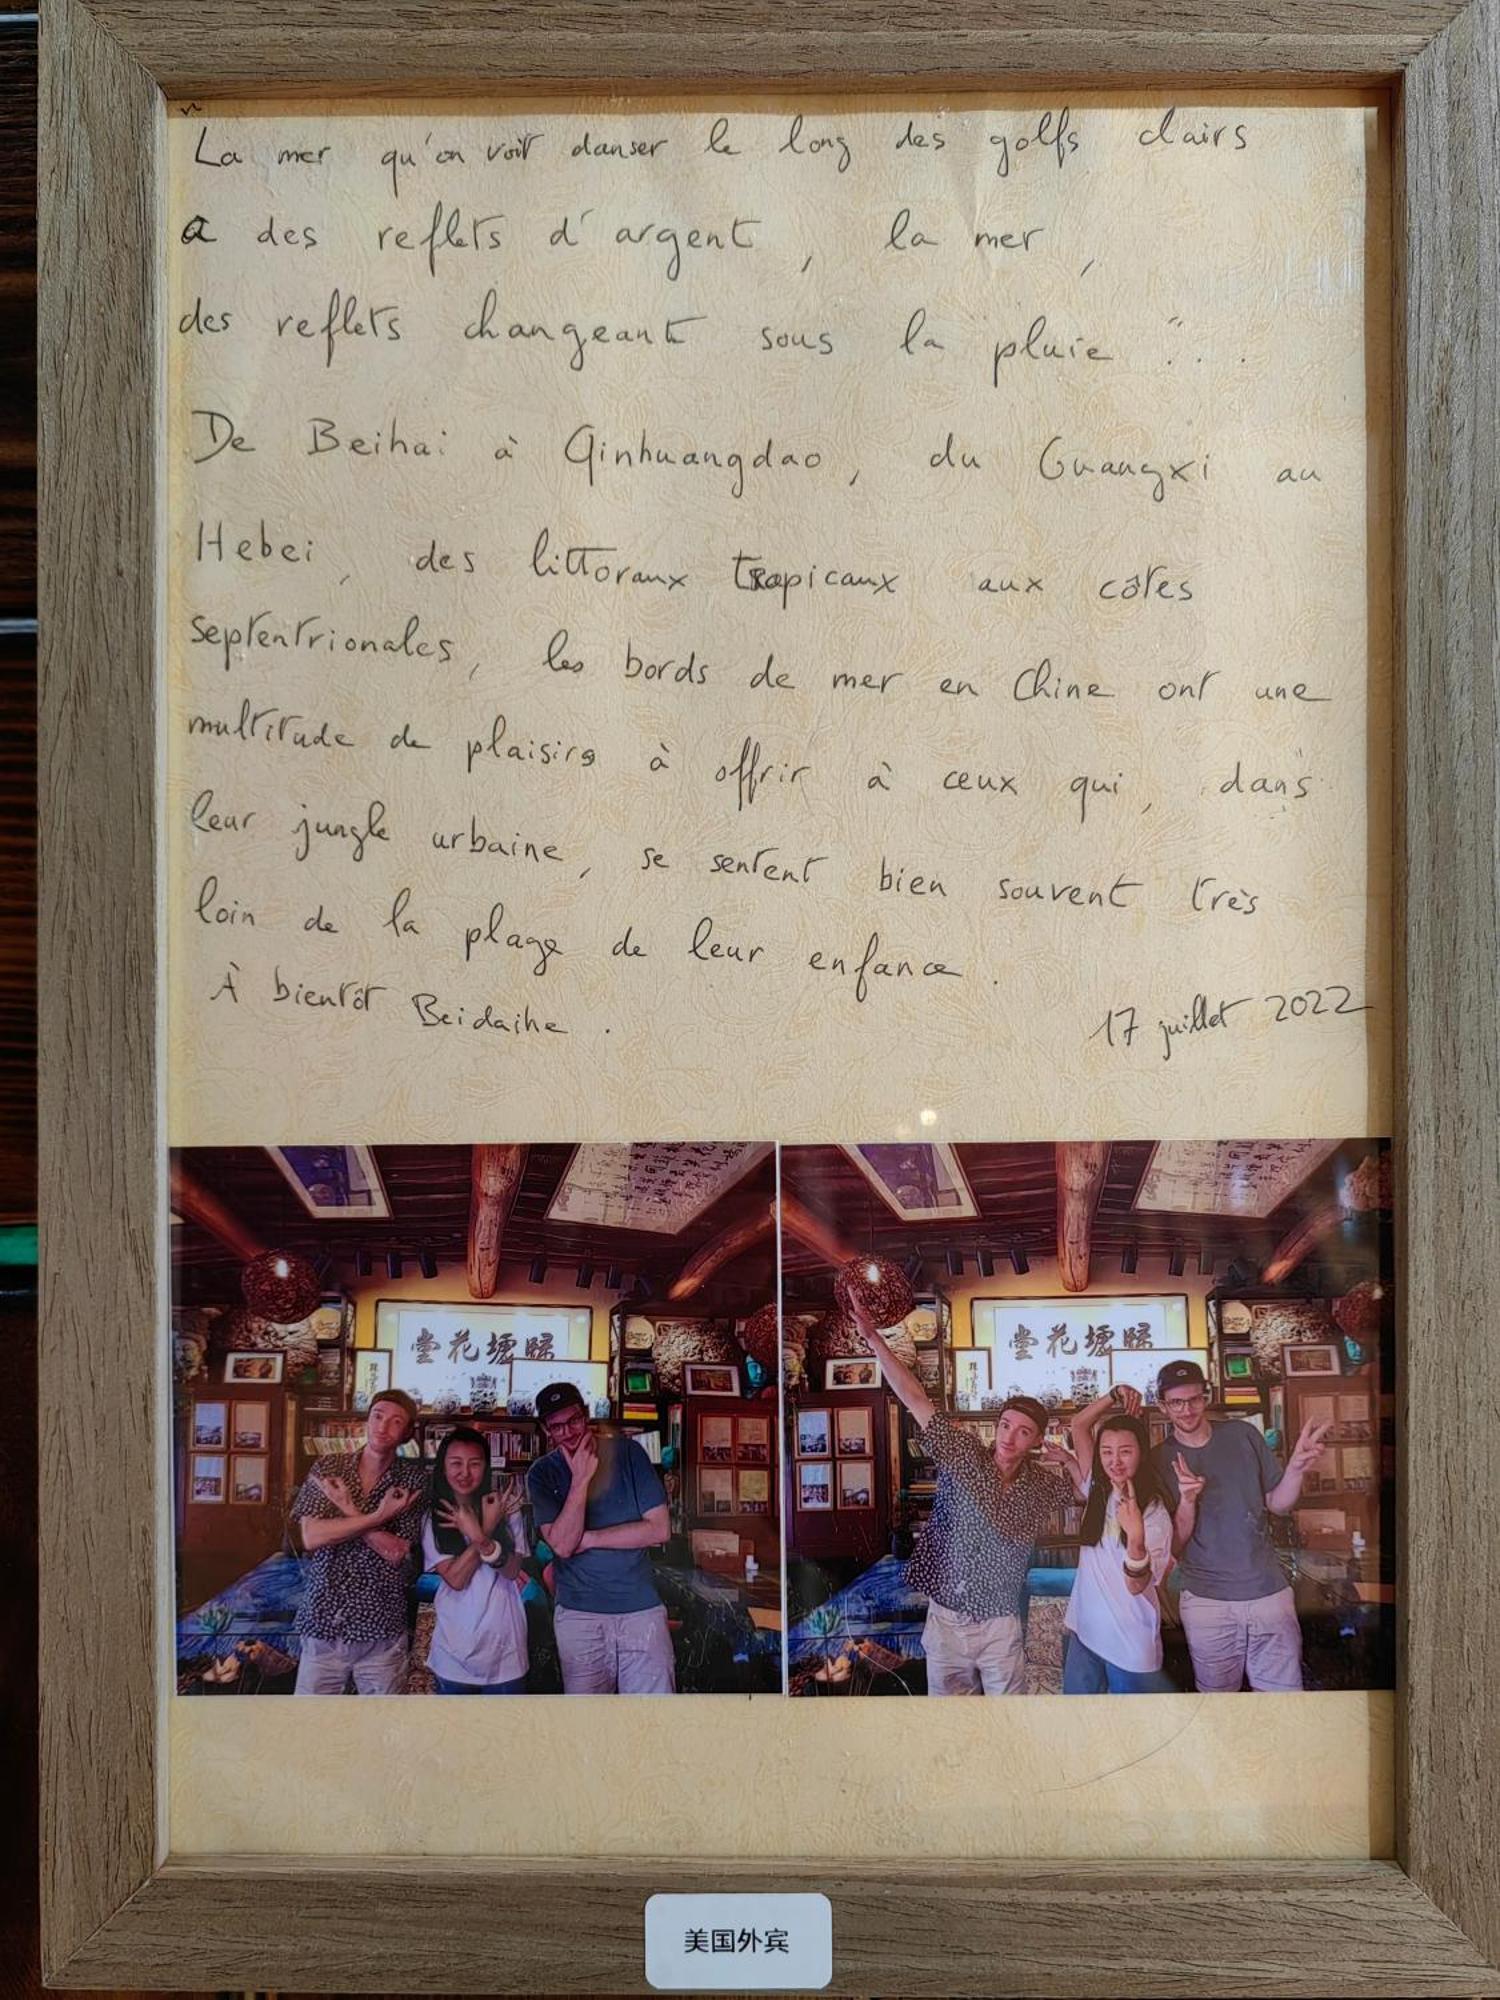 "
La mer qu'on voit danser le long des golfs clairs
a des reflets d'argent, la mer,
des reflets changeant sous la pluie "...
De Beihai à Qinhuangdao, du Guangxi au
Hebei, des littoraux tropicaux aux côtes
septentrionales, les bords de mer en Chine ont une
multitude de plaisirs à offrir à ceux qui, dans
leur jungle urbaine, se sentent bien souvent très
loin de la plage de leur enfance.
À bientôt Beidaihe.
17 juillet 2022
堂花塘歸
堂花塘歸
美国外宾